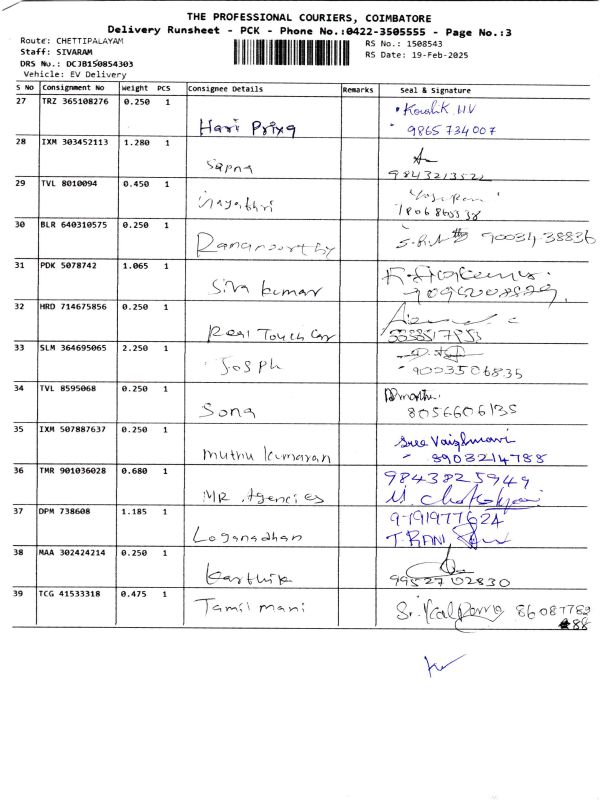 THE PROFESSIONAL COURIERS, COIMBATORE
Delivery Runsheet - PCK - Phone No.:0422-3505555 - Page No.:3
Route: CHETTIPALAYAM
RS No.: 1508543
Staff: SIVARAM
RS Date: 19-Feb-2025
DRS No.: DCJB150854303
Vehicle: EV Delivery
S No Consignment No Weight PCS Consignee Details Remarks Seal & Signature
27 TRZ 365108276 0.250 1 Hari Priya
9865734007
28 IXM 303452113 1.280 1 Sapna
29 TVL 8010094 0.450 1
30 BLR 640310575 0.250 1 90034-38836
31 PDK 5078742 1.065 1 Siva kumar
32 HRD 714675856 0.250 1 Real Touch
33 SLM 364695065 2.250 1 Josph
9003506835
34 TVL 8595068 0.250 1 Sona
8056606135
35 IXM 507887637 0.250 1 muthu kumaran Sree Vaishnavi
8903214788
36 TMR 901036028 0.680 1 MR Agencies 9843825949
37 DPM 738608 1.185 1 Loganadhan
T. RANI
38 MAA 302424214 0.250 1 Karthik
9952702830
39 TCG 41533318 0.475 1 Tamil mani